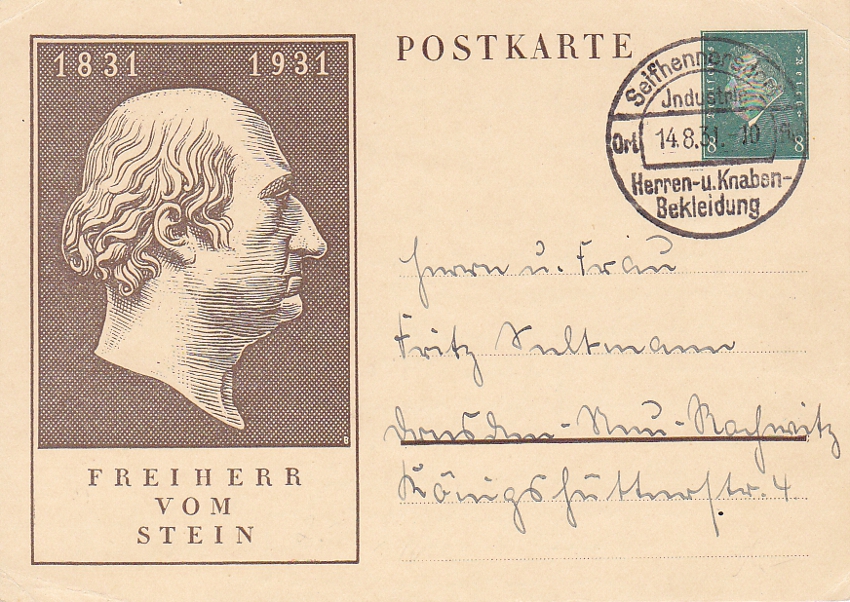 1831 1931
FREIHERR
VOM
STEIN
POSTKARTE
Seifhennersdorf
Industrie
Ort 14.8.31.-10
Herren-u.Knaben-
Bekleidung
8 8
Herrn u. Frau
Fritz Sultmann
Dresden-Neu-Rochwitz
Königshütterstr. 4.